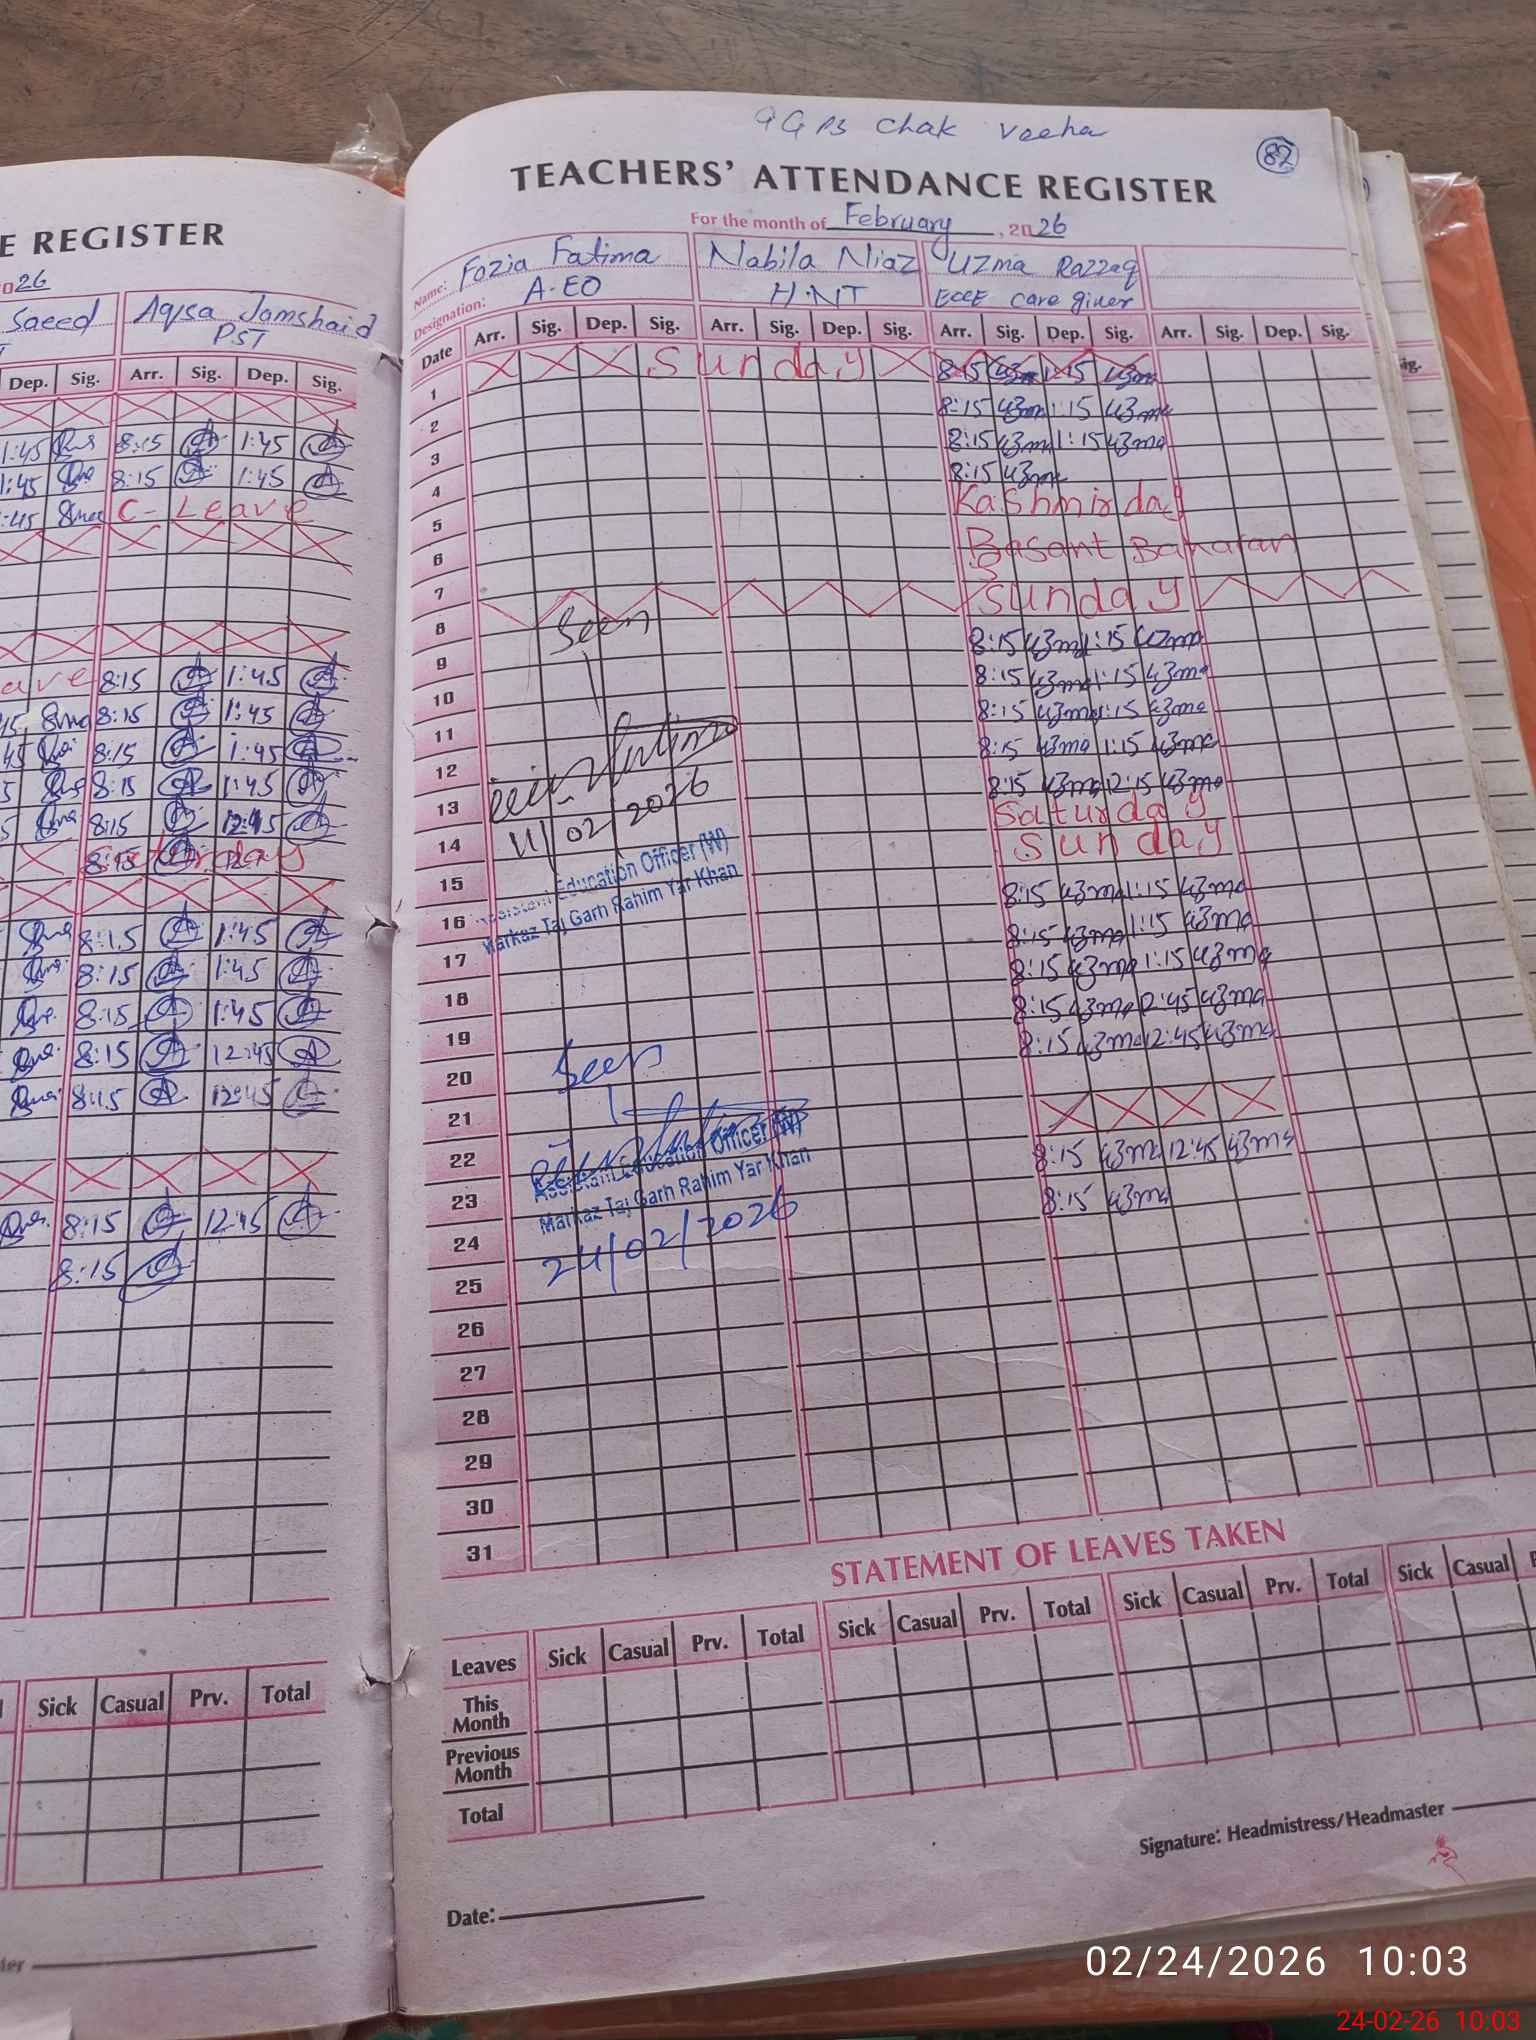 GGPS Chak Veeha
82
TEACHERS' ATTENDANCE REGISTER
For the month of February, 2026
Name: Fozia Fatima Nabila Niaz Uzma Razzaq
Designation: A-EO H.NT ECCE care giver
Date Arr. Sig. Dep. Sig. Arr. Sig. Dep. Sig. Arr. Sig. Dep. Sig. Arr. Sig. Dep. Sig.
1 Sunday 8:15 uzma 1:15 uzma
2 8:15 uzma 1:15 uzma
3 8:15 uzma 1:15 uzma
4 8:15 uzma
5 Kashmir day
6 Basant Baharan
7
8 Sunday
Seen
9 8:15 uzma 1:15 uzma
10 8:15 uzma 1:15 uzma
11 8:15 uzma 1:15 uzma
12 8:15 uzma 1:15 uzma
13 8:15 uzma 12:15 uzma
11/02/2026
14 Saturday
15 Sunday
Assistant Education Officer (W)
Markaz Taj Garh Rahim Yar Khan
16 8:15 uzma 1:15 uzma
17 8:15 uzma 1:15 uzma
18 8:15 uzma 1:15 uzma
19 8:15 uzma 12:45 uzma
20 8:15 uzma 12:45 uzma
Seen
21
22
Assistant Education Officer (W)
Markaz Taj Garh Rahim Yar Khan
23 8:15 uzma 12:45 uzma
24 8:15 uzma
24/02/2026
25
26
27
28
29
30
31
STATEMENT OF LEAVES TAKEN
Leaves Sick Casual Prv. Total Sick Casual Prv. Total Sick Casual Prv. Total Sick Casual
This Month
Previous Month
Total
Signature: Headmistress/Headmaster
Date:
E REGISTER
026
Saeed Aqsa Jamshaid
PST
Dep. Sig. Arr. Sig. Dep. Sig.
1:45 8:15 1:45
1:45 8:15 1:45
:45 C-Leave
ave 8:15 1:45
8:15 1:45
45 8:15 1:45
5 8:15 1:45
5 8:15 12:45
8:15 Saturday
8:15 1:45
8:15 1:45
8:15 1:45
8:15 12:45
8:15 12:45
8:15 12:45
8:15
Sick Casual Prv. Total
02/24/2026 10:03
24-02-26 10:03